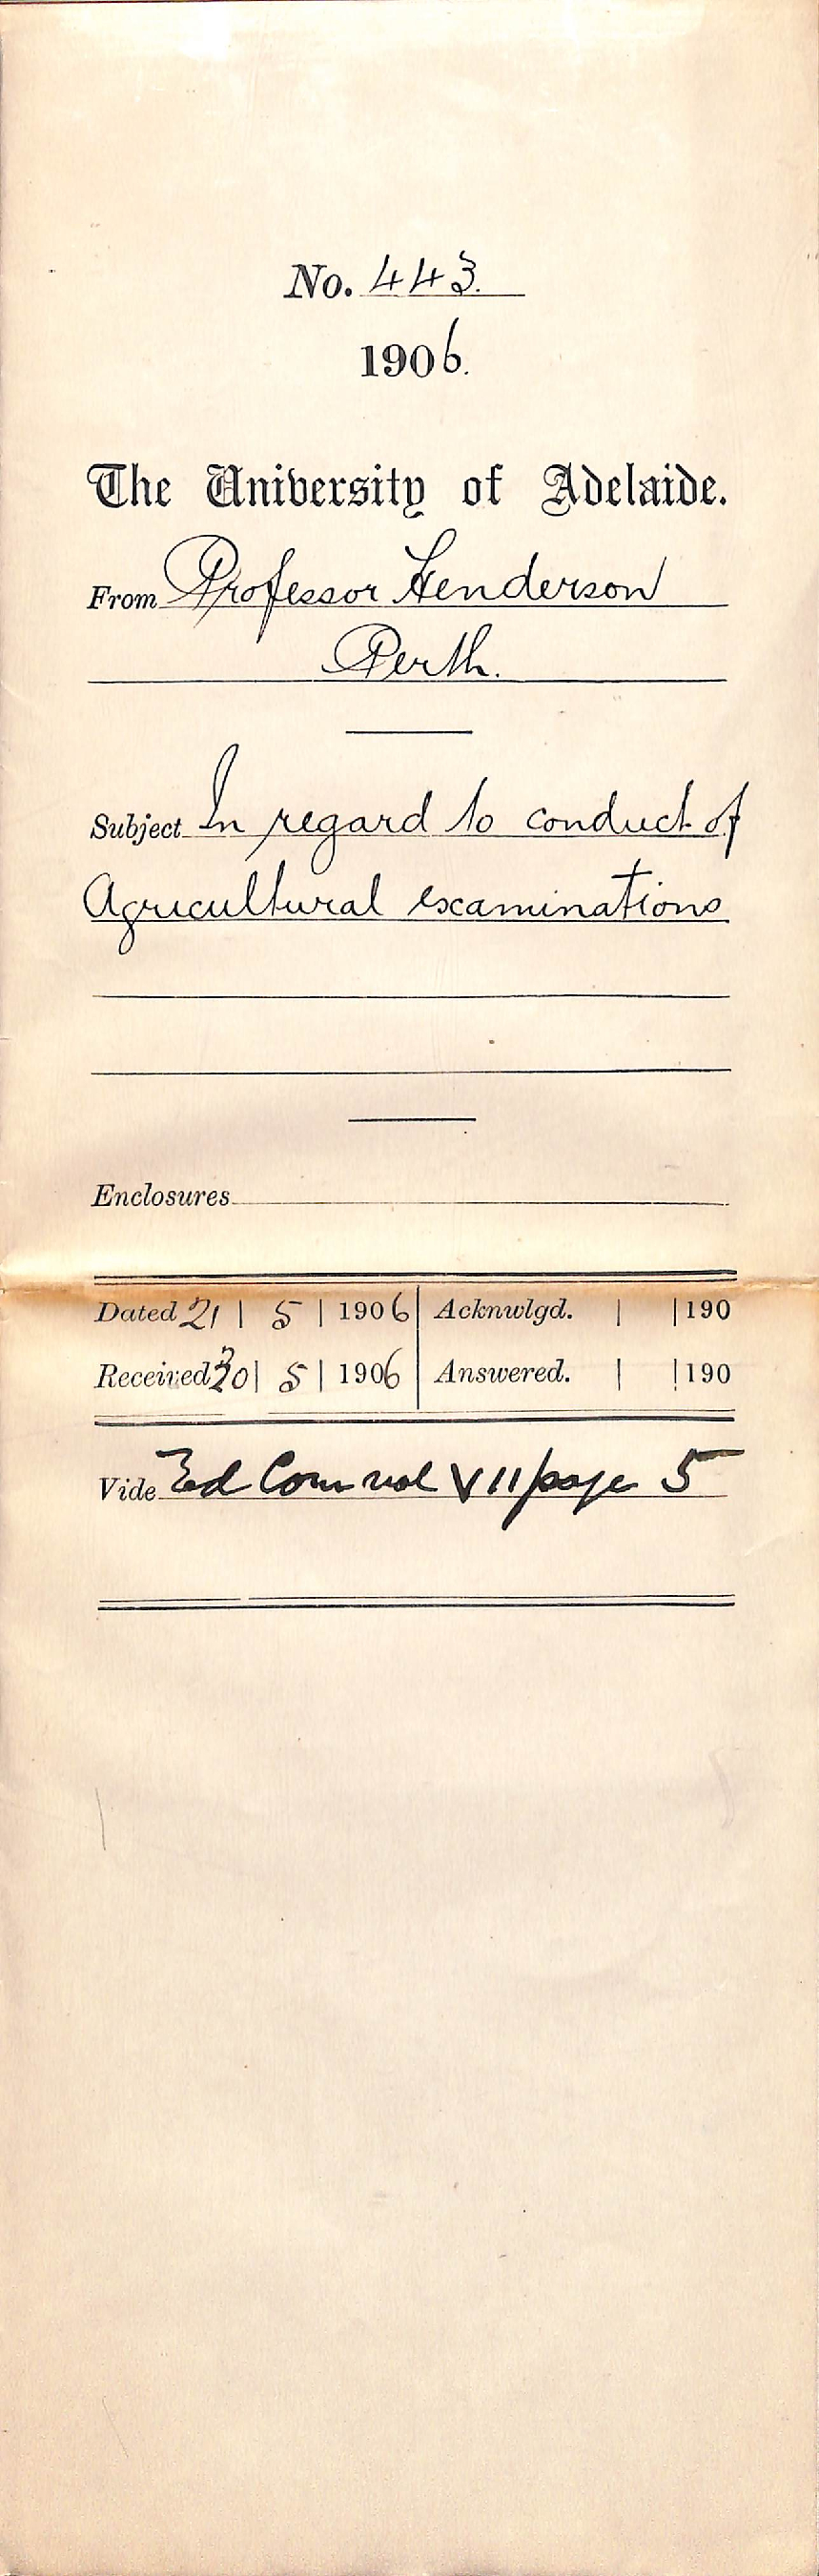 No. 443.
1906.
The University of Adelaide.
From Professor Henderson
Perth.
Subject In regard to conduct of
Agricultural examinations
Enclosures
Dated 21 | 5 | 1906 Acknwlgd. | | 190
Received 30 | 5 | 1906 Answered. | | 190
Vide Ed Com vol VII page 5